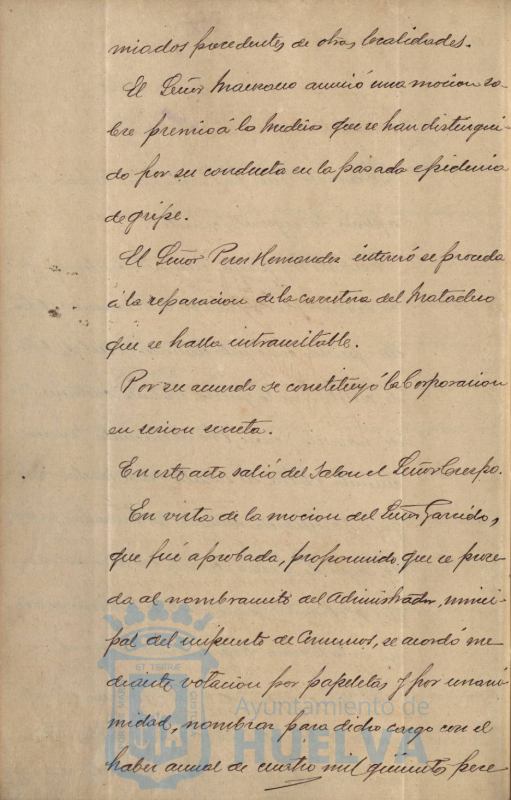 miados procedentes de otras localidades.
El Señor Manzano anunció una mocion so-
bre premio á lo Medicos que se han distingui-
do por su conducta en la pasada epidemia
de gripe.
El Señor Perez Hernandez interesó se proceda
á la reparacion de la carretera del Matadero
que se halla intransitable.
Por su acuerdo se constituyó la Corporacion
en sesion secreta.
En este acto salió del Salon el Señor Crespo.
En vista de la mocion del Señor Garrido,
que fué aprobada, proponiendo que se proce
da al nombramiento del Administrador, munici-
pal del impuesto de Consumos, se acordó me
diante votacion por papeletas y por unani
midad, nombrar para dicho cargo con el
haber anual de cuatro mil quinientas pese
Ayuntamiento de
HUELVA